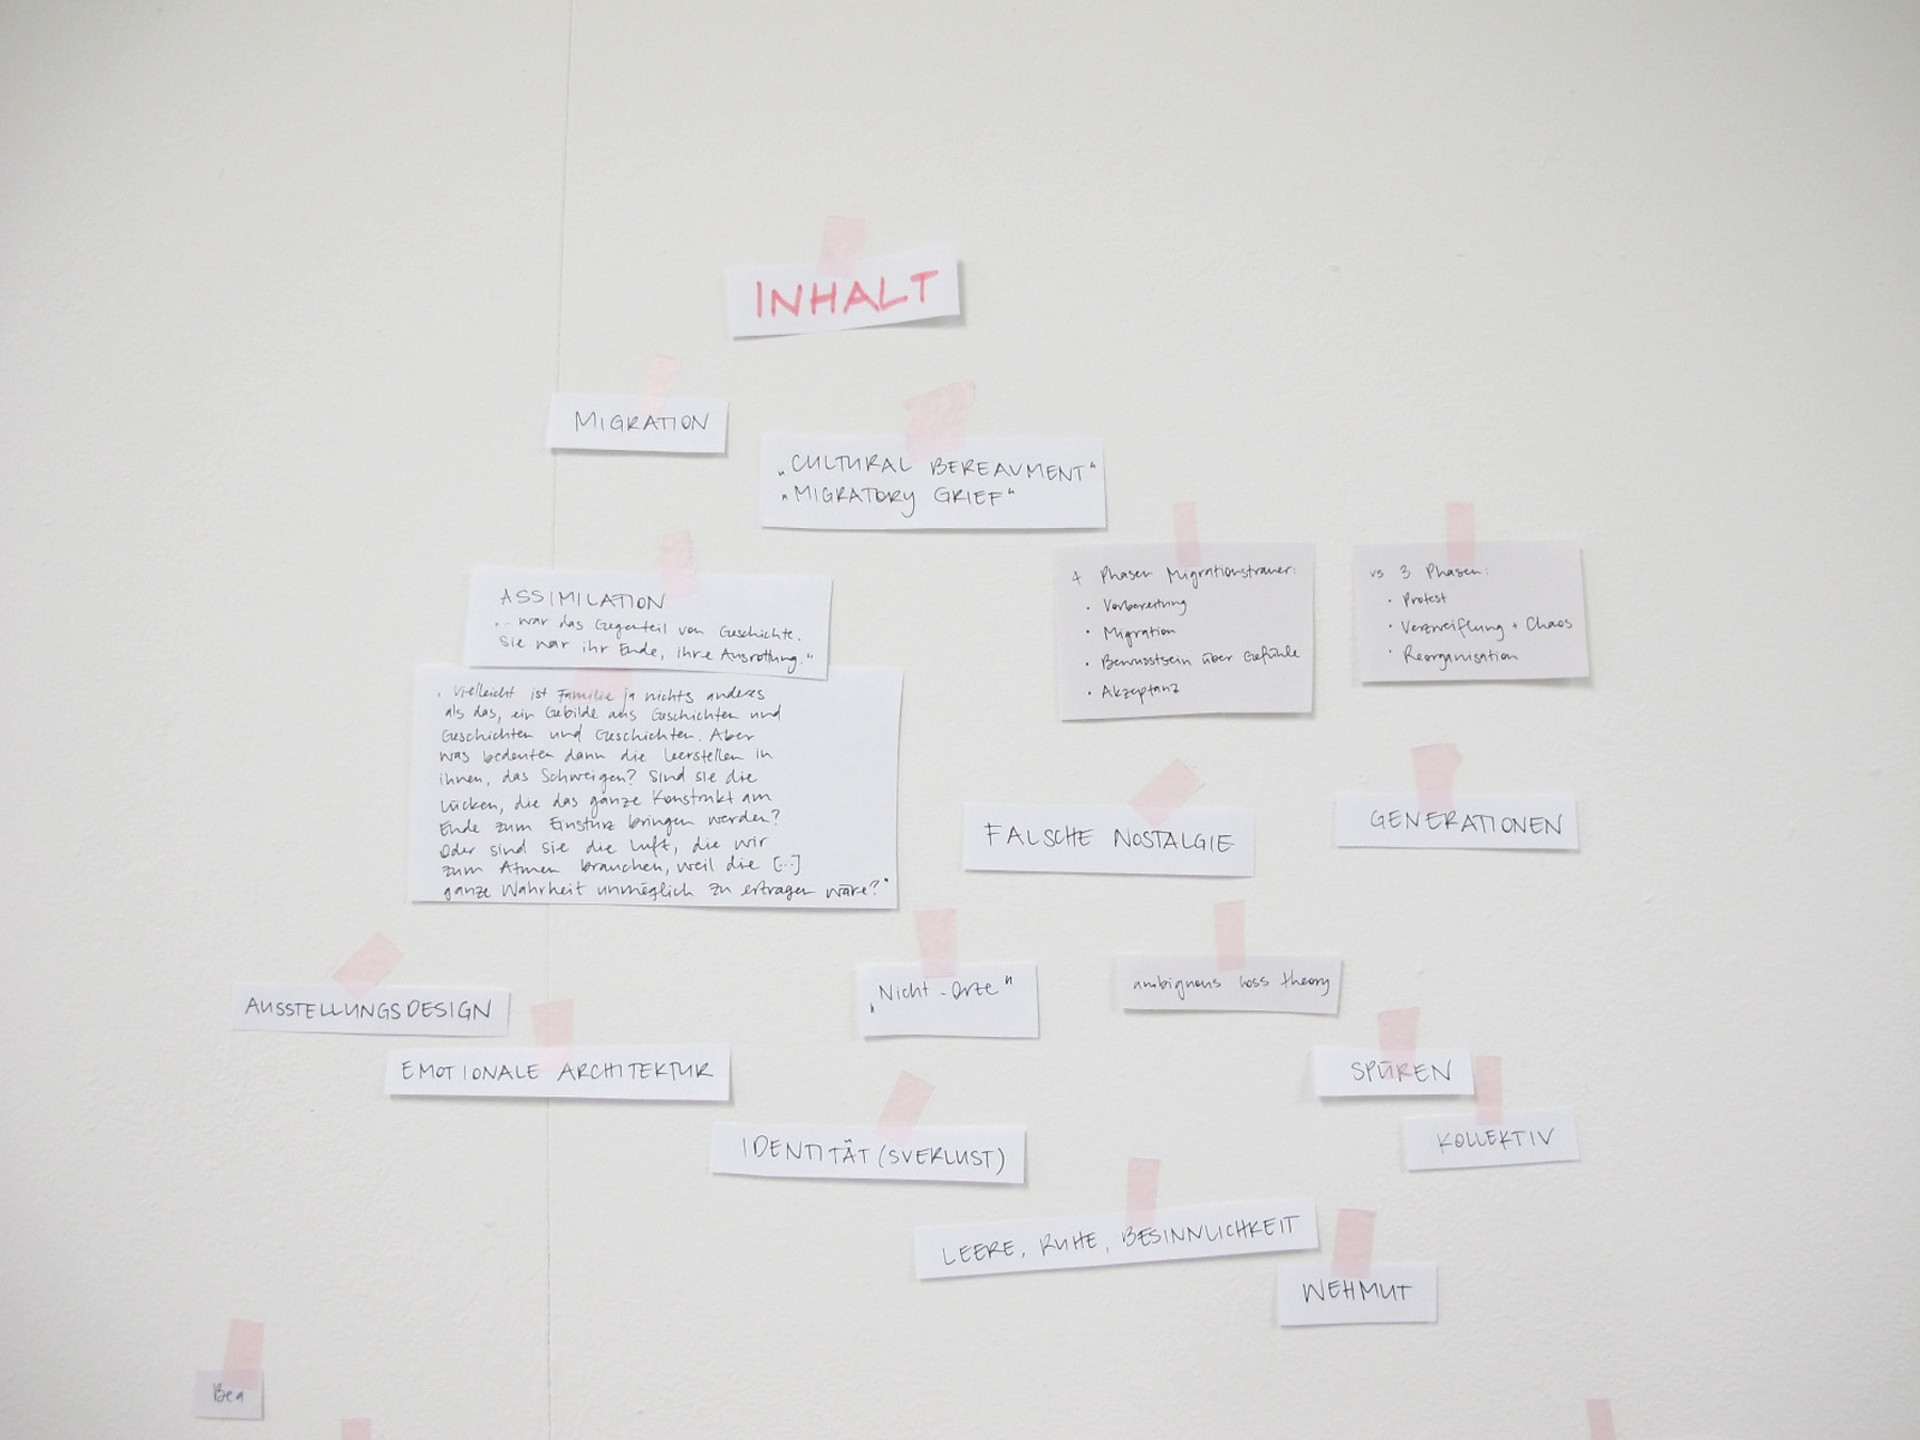 INHALT
MIGRATION
„CULTURAL BEREAVMENT“
„MIGRATORY GRIEF“
ASSIMILATION
„... war das Gegenteil von Geschichte.
Sie war ihr Ende, ihre Ausrottung.“
4 Phasen Migrationstrauer:
· Vorbereitung
· Migration
· Bewusstsein über Gefühle
· Akzeptanz
vs 3 Phasen:
· Protest
· Verzweiflung + Chaos
· Reorganisation
„Vielleicht ist Familie ja nichts anderes
als das, ein Gebilde aus Geschichten und
Geschichten und Geschichten. Aber
was bedeuten dann die Leerstellen in
ihnen, das Schweigen? Sind sie die
Lücken, die das ganze Konstrukt am
Ende zum Einsturz bringen werden?
Oder sind sie die Luft, die wir
zum Atmen brauchen, weil die [...]
ganze Wahrheit unmöglich zu ertragen wäre?“
FALSCHE NOSTALGIE
GENERATIONEN
AUSSTELLUNGSDESIGN
„Nicht-Orte“
ambiguous loss theory
EMOTIONALE ARCHITEKTUR
SPÜREN
KOLLEKTIV
IDENTITÄT(SVERLUST)
LEERE, RUHE, BESINNLICHKEIT
WEHMUT
Bea